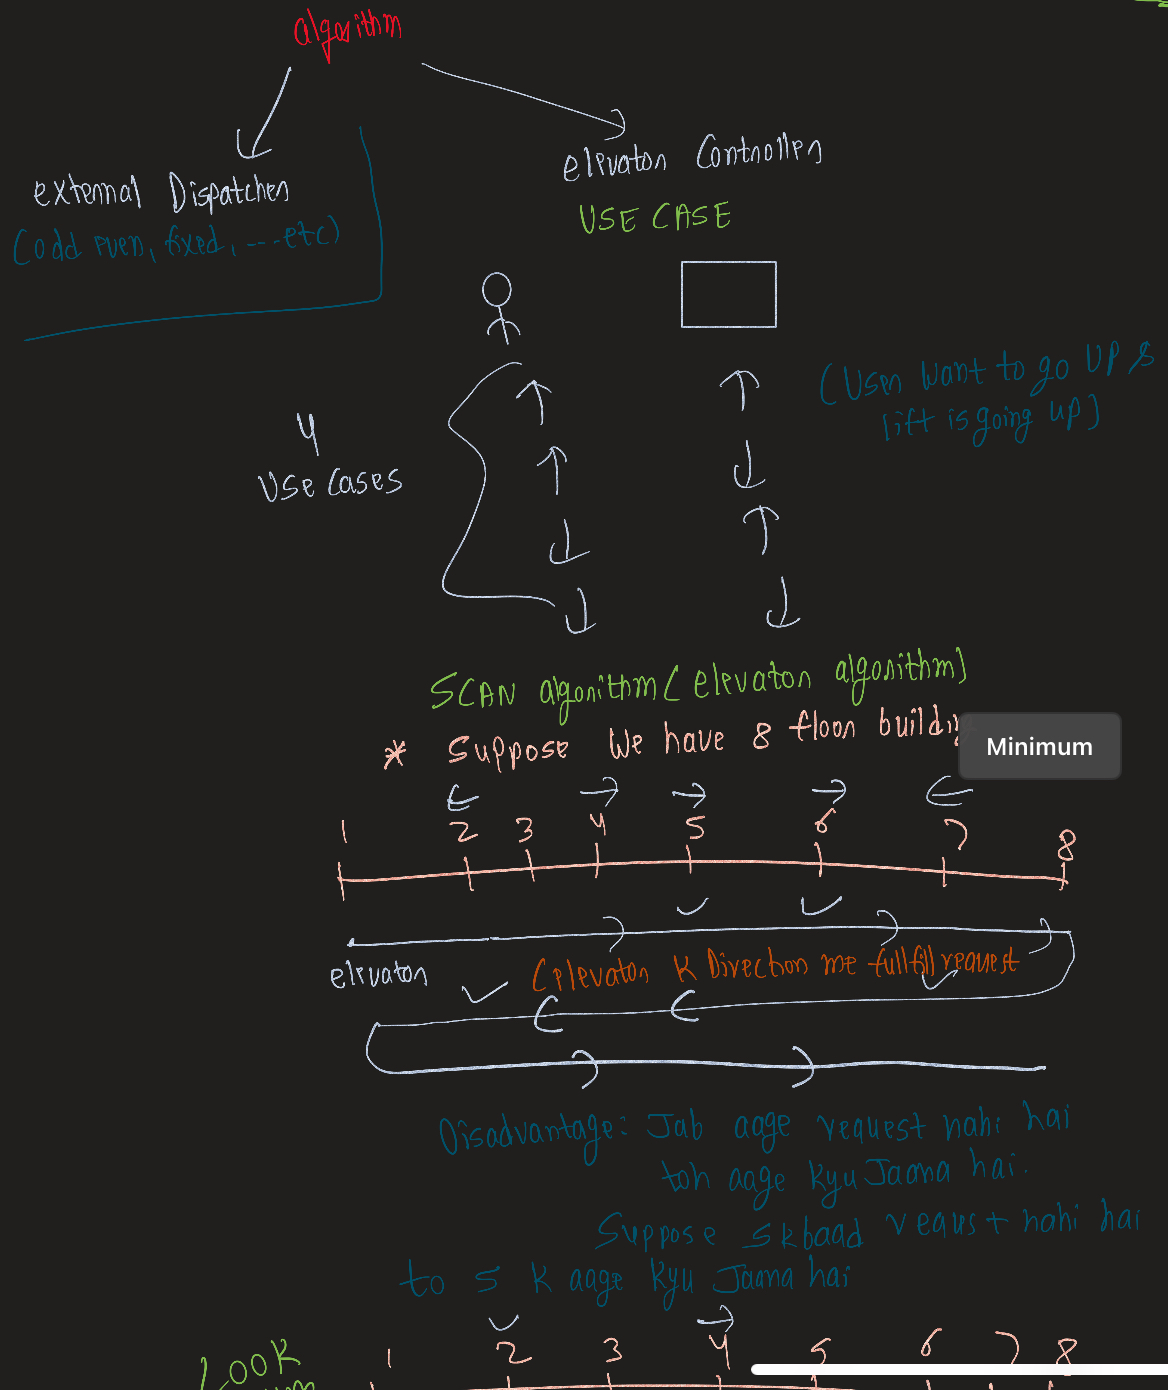 algorithm
external Dispatcher
(odd even, fixed, ---etc)
elevator Controller
USE CASE
(User want to go UP &
lift is going up)
4
Use Cases
SCAN algorithm (elevator algorithm)
* Suppose We have 8 floor building
Minimum
1 2 3 4 5 6 7 8
elevator
(elevator K Direction me fullfill request
Disadvantage: Jab aage request nahi hai
toh aage kyu Jaana hai.
Suppose 5 k baad request nahi hai
to 5 K aage kyu Jaana hai
LOOK
1 2 3 4 5 6 7 8